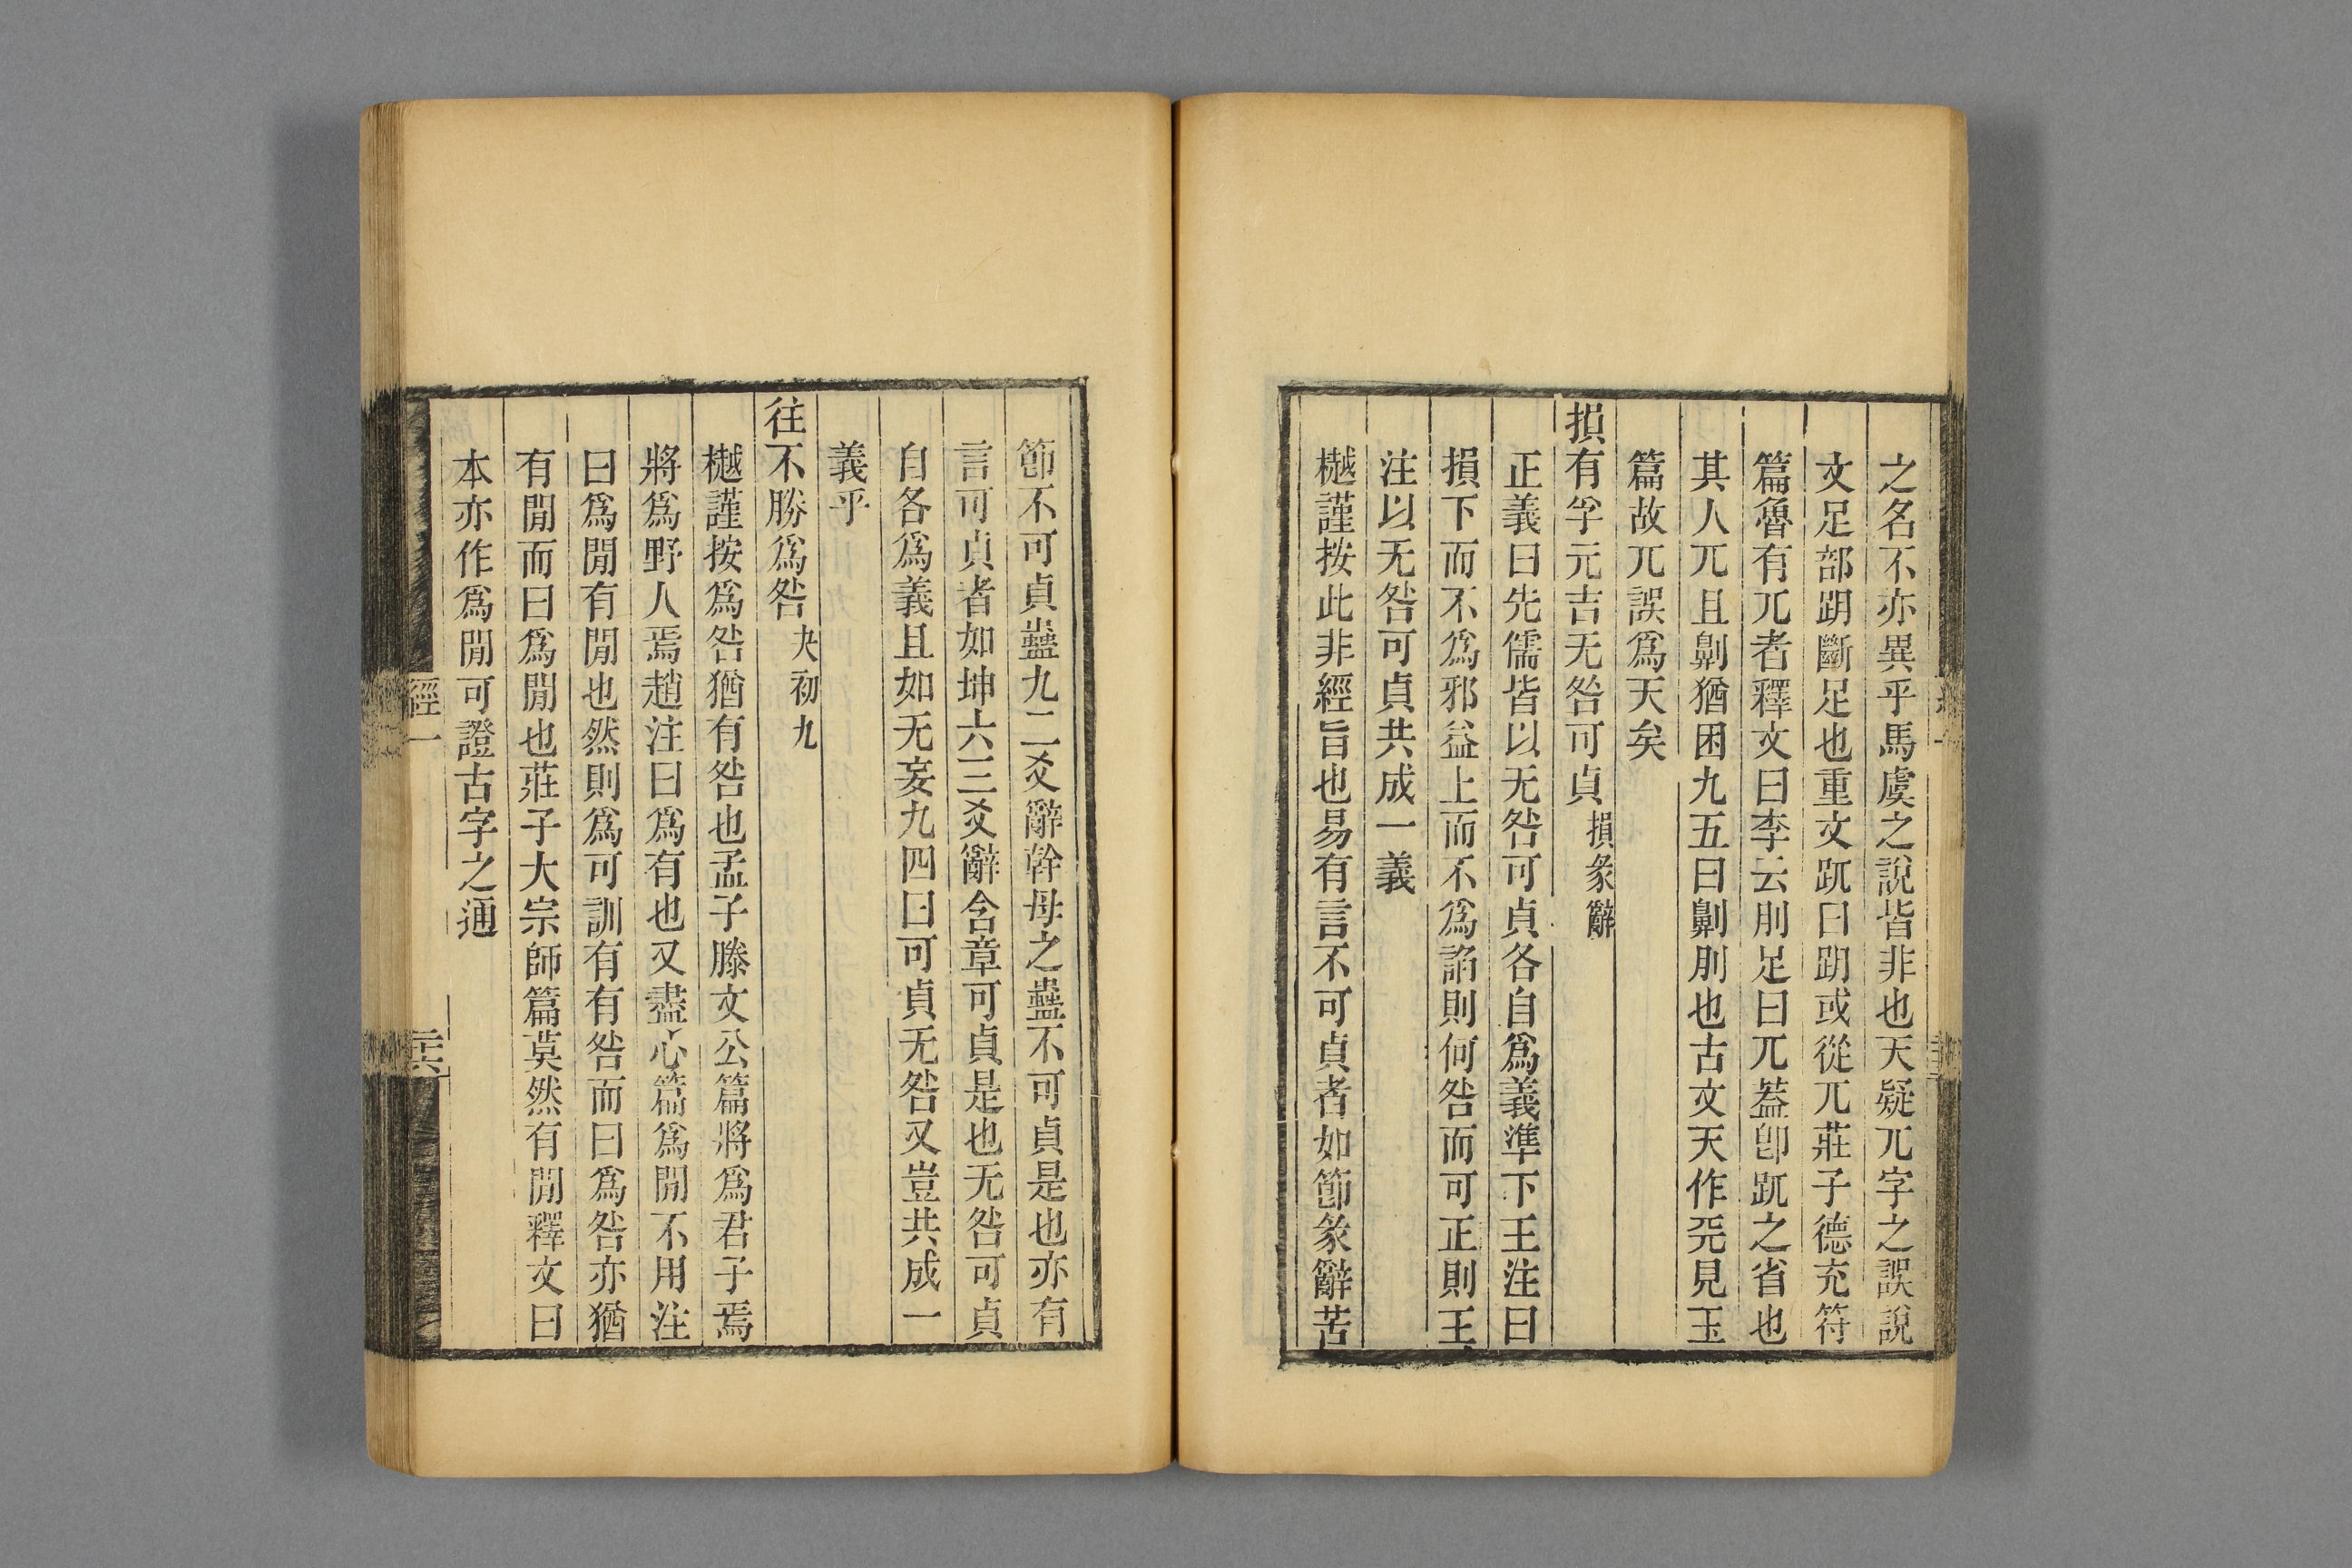 之名不亦異乎馬虞之說皆非也天疑兀字之誤說
文足部跀斷足也重文𧿁曰跀或從兀莊子德充符
篇魯有兀者釋文曰李云刖足曰兀蓋卽𧿁之省也
其人兀且劓猶困九五曰劓刖也古文天作兂見玉
篇故兀誤爲天矣
損有孚元吉无咎可貞損彖辭
正義曰先儒皆以无咎可貞各自爲義準下王注曰
損下而不爲邪益上而不爲諂則何咎而可正則王
注以无咎可貞共成一義
樾謹按此非經旨也易有言不可貞者如節彖辭苦
節不可貞蠱九二爻辭幹母之蠱不可貞是也亦有
言可貞者如坤六三爻辭含章可貞是也无咎可貞
自各爲義且如无妄九四曰可貞无咎又豈共成一
義乎
往不勝爲咎夬初九
樾謹按爲咎猶有咎也孟子滕文公篇將爲君子焉
將爲野人焉趙注曰爲有也又盡心篇爲閒不用注
曰爲閒有閒也然則爲可訓有有咎而曰爲咎亦猶
有閒而曰爲閒也莊子大宗師篇莫然有閒釋文曰
本亦作爲閒可證古字之通
經一
二十六